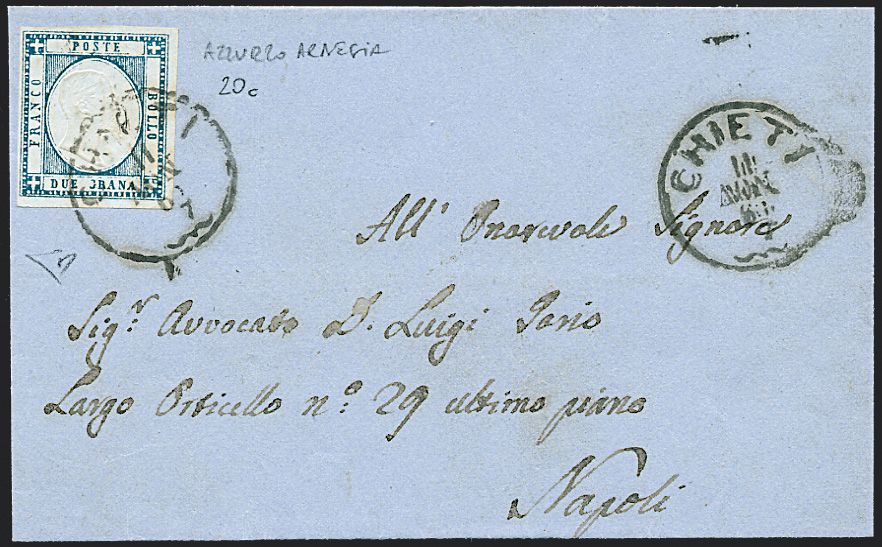 POSTE
FRANCO
BOLLO
DUE GRANA
AZZURRO ARDESIA
20c
CHIETI
All' Onorevole Signore
Sig.r Avvocato D. Luigi
Largo Orticello n.o 29 ultimo piano
Napoli